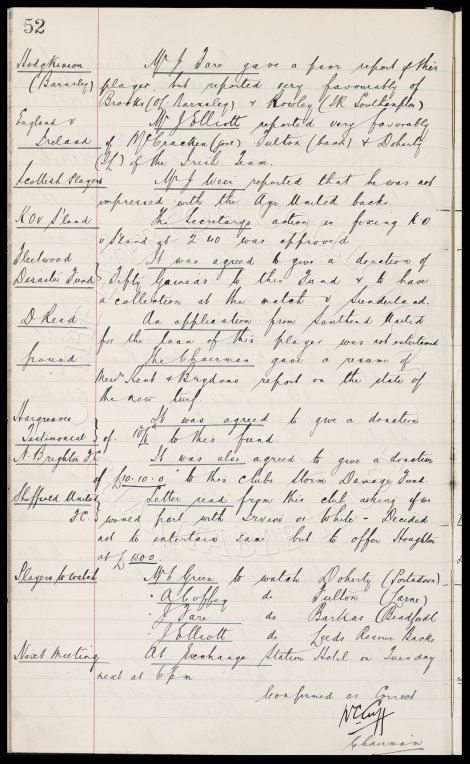 52
Hodgkinson Mr J Fare gave a poor report of this
(Barnsley) player but reported very favourably of
Brooks (of Barnsley) & Rowley (IR Southampton)
England v Mr J Elliott reported very favorably
Ireland of McCracken (goal) Fulton (back) & Doherty
(I/L) of the Irish Team.
Scottish Players Mr J Weir reported that he was not
impressed with the Ayr United backs
K O v S'land The Secretarys action in fixing K O
v S'land at 2.40 was approved
Fleetwood It was agreed to give a donation of
Disaster Fund } Fifty Guineas to this Fund & to have
a collection at the match v Sunderland.
D Reid An application from Southend United
for the loan of this player was not entertained
Ground The Chairman gave a resume of
Messrs Kent & Brydons report on the state of
the new turf
Hargreaves It was agreed to give a donation
Testimonial } of 10/6 to this fund.
N. Brighton F C It was also agreed to give a donation
of £10.10.0 to this clubs Storm Damage Fund.
Sheffield United Letter read from this club asking if we
F C } would part with Irvine or White - Decided
not to entertain same but to offer Houghton
at £1500.
Players to watch Mr E Green to watch Doherty (Portadown)
" A Coffey do Fulton (Larne)
" J Fare do Barkas (Bradford)
" J Elliott do Leeds Reserve Backs
Next Meeting At Exchange Station Hotel on Tuesday
next at 6 pm
Confirmed as Correct
W C Cuff
Chairman